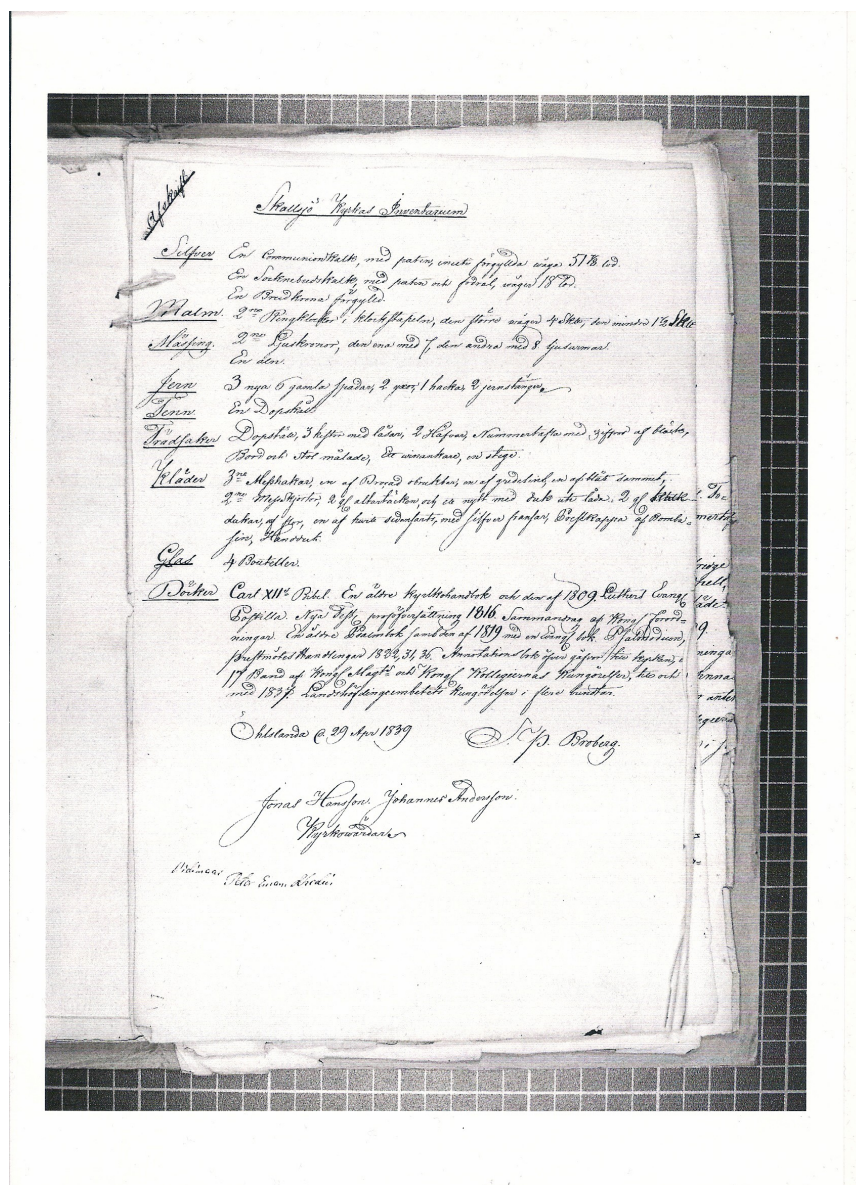 Afskrift
Skallsjö Kyrkas Inventarium
Silfver En Communionkalk, med paten, förgyllda wäga 51 7/8 lod.
En Sockenebudskalk, med paten och fodral, wäger 18 lod.
En Brödkanna förgylld.
Malm. 2ne Ringklockor i klockstapeln, den större wäger 4 Sklb, den mindre 1½ Sklb
Mässing. 2ne Ljuskronor, den ena med den andra med 8 ljusarmar.
En aln.
Jern 3 nya 6 gamla spadar, 2 yxor, 1 hacka, 2 jernstänger
Tenn En Dopskål
Trädsaker Dopställ, 3 kistor med låsar, 2 Håfvar, Nummertafla med siffror af bläck,
Bord och stol målade, Ett winankare, en stege.
Kläder 3ne Messhakar, en af Brocad obrukbar, en af gredelint, en af blått sammet,
2ne Messskjortor, 2 af altartäcken, och ett nytt med duk utelade, 2 af kalk
dukar, af flor, en af hwit sidensarts, med silfver fransar, af Bomba-
sin, Handduk.
Glas 4 Bouteiller.
Böcker Carl XIIs Bibel. En äldre kyrkohandbok och den af 1809. Luthers Evangl.
Postilla. Nya Test. proföfversättning 1816 Sammandrag af Kongl Förord-
ningar. En äldre Psalmbok samt den af 1819 med en Evangl. bok, Psalmodium,
prestmötes Handlingar 1832, 34, 36, Annotations bok öfver gåfvor till kyrkan,
17 Band af Kongl Majts och Kongl Kollegiernas Kungörelser, till och
med 1837. Landshöfdingeembetets Kungörelser i flere buntar.
Öhlslanda d. 29 Apr 1839
S. P. Broberg.
Jonas Hansson. Johannes Andersson.
Kyrkowärdar
Vidimeras
Peter Eman